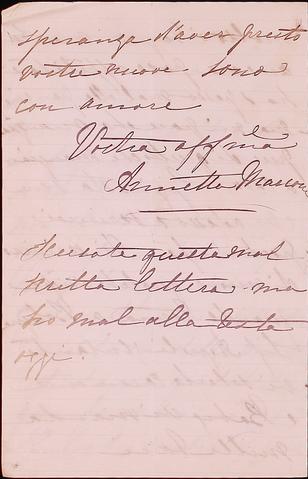 speranza d'aver presto
vostre nuove sono
con amore
Vostra affma
Annetta
Scusate questa mal
scritta lettera ma
ho mal alla testa
oggi.